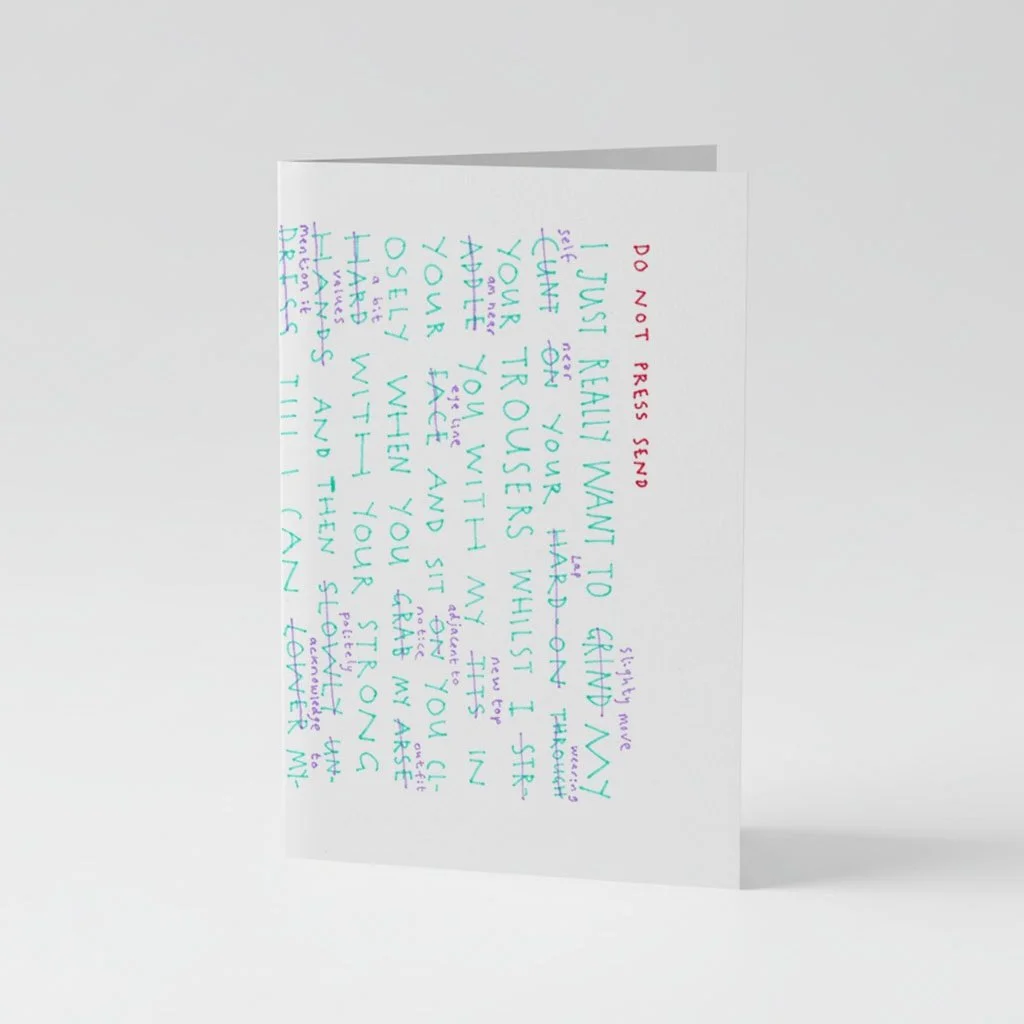 DO NOT PRESS SEND
slighty move
I JUST REALLY WANT TO GRIND MY
self near Lap wearing
CUNT ON YOUR HARD-ON THROUGH
YOUR TROUSERS WHILST I STR-
am near new top
ADDLE YOU WITH MY TITS IN
eye line adjacent to
YOUR FACE AND SIT ON YOU CL-
notice outfit
OSELY WHEN YOU GRAB MY ARSE
a bit
HARD WITH YOUR STRONG
values politely
HANDS AND THEN SLOWLY UN-
mention it acknowledge to
DRESS TILL I CAN LOWER MY-